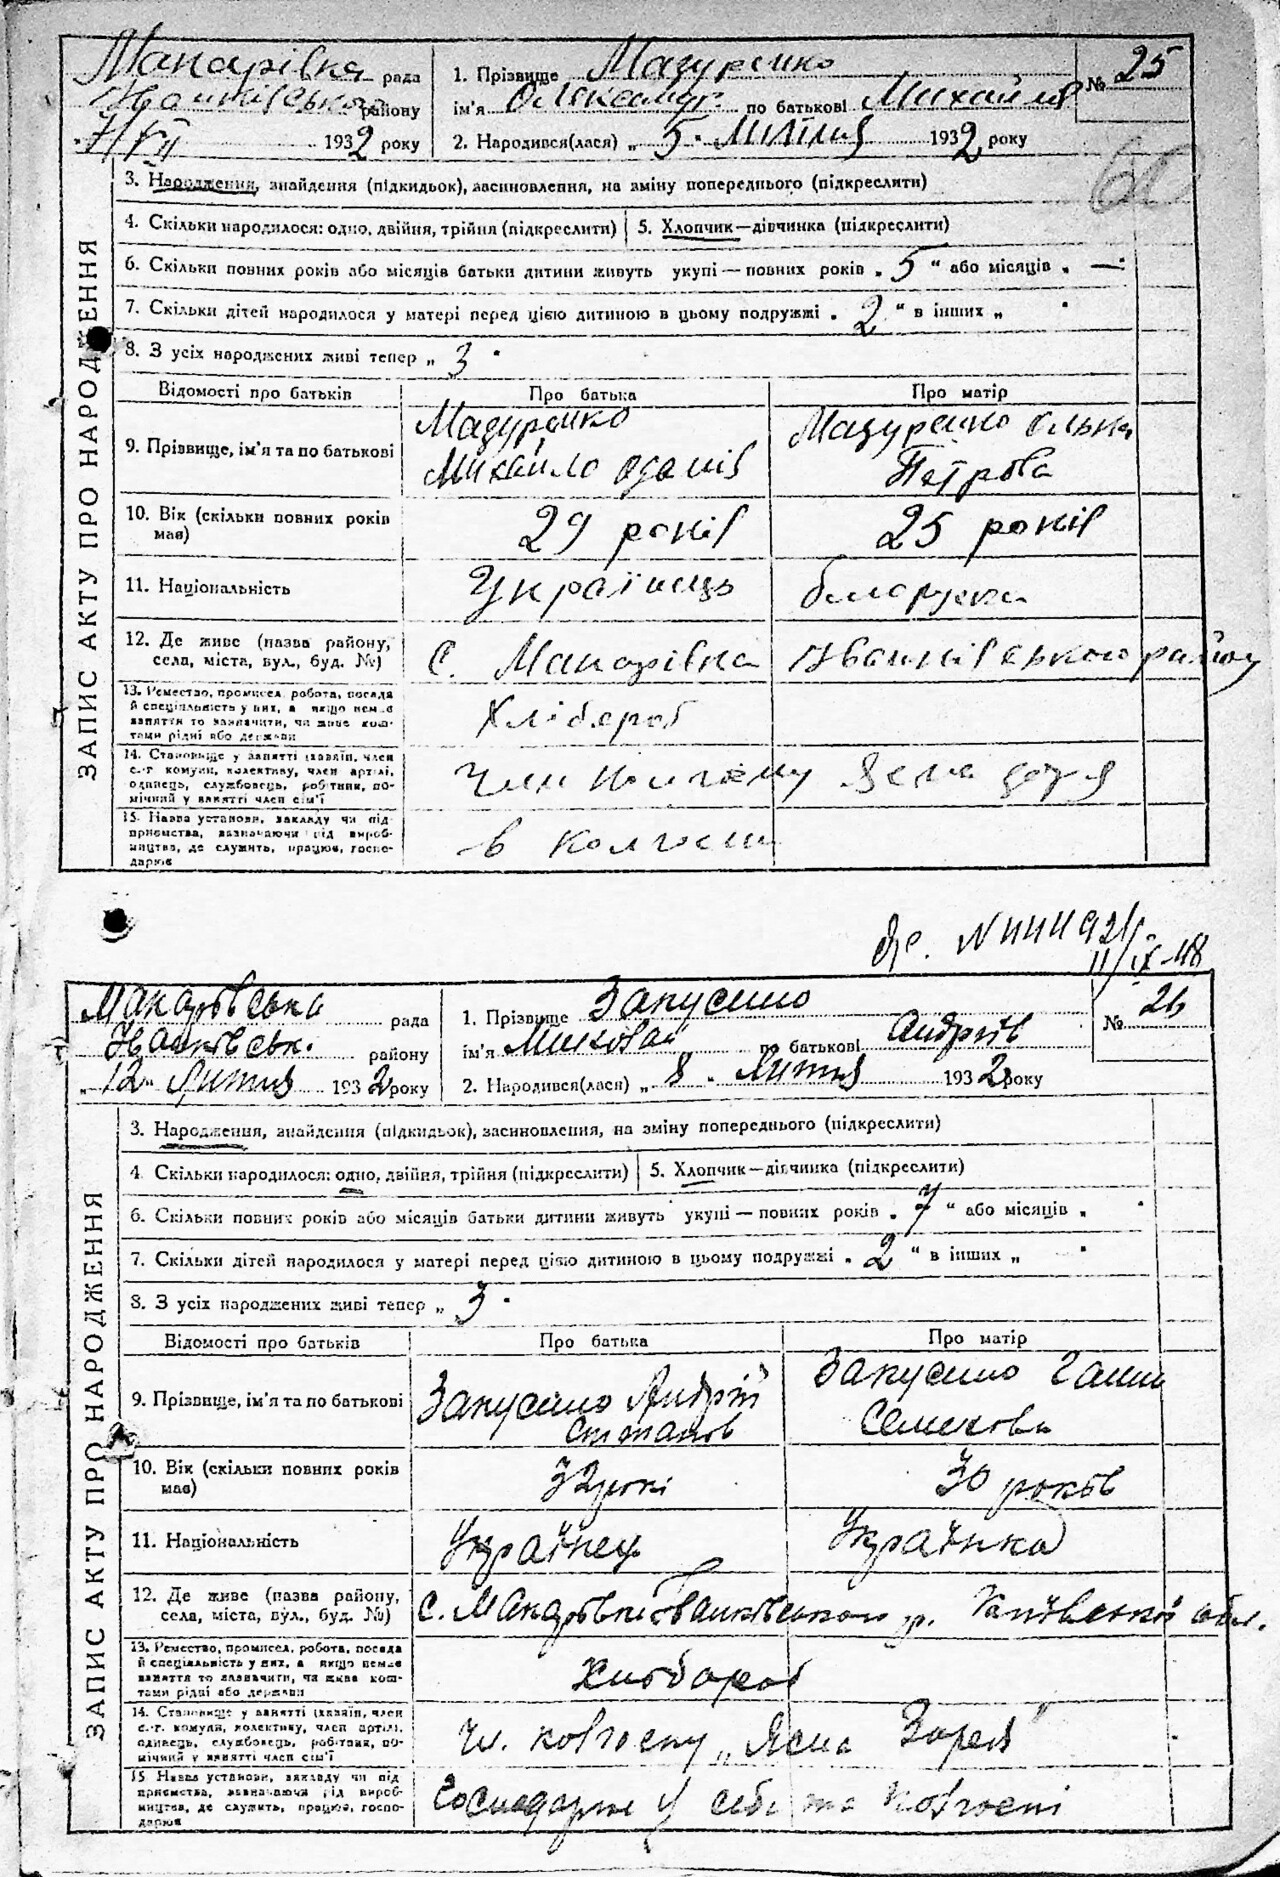 Макарівка рада
Іванківського району
7/VII 1932 року
1. Прізвище Мазуренко
ім'я Олександр по батькові Михайлів
2. Народився(лася) „ 5 " липня 1932 року
№ 25
ЗАПИС АКТУ ПРО НАРОДЖЕННЯ
3. Народження, знайдення (підкидьок), засиновлення, на зміну попереднього (підкреслити)
4. Скільки народилося: одно, двійня, трійня (підкреслити) 5. Хлопчик—дівчинка (підкреслити)
6. Скільки повних років або місяців батьки дитини живуть укупі — повних років „ 5 " або місяців „ — "
7. Скільки дітей народилося у матері перед цією дитиною в цьому подружжі „ 2 " в інших „ "
8. З усіх народжених живі тепер „ 3 "
Відомості про батьків Про батька Про матір
9. Прізвище, ім'я та по батькові
Мазуренко
Михайло
Мазуренко Ольга
Петрова
10. Вік (скільки повних років
має)
29 років 25 років
11. Національність Українець білоруска
12. Де живе (назва району,
села, міста, вул., буд. №)
с. Макарівка Іванківського району
13. Ремество, промисел, робота, посада
й спеціальність у них, а якщо немає
заняття то зазначити, чи живе кош-
тами рідні або держави
Хлібороб
14. Становище у занятті (хазяїн, член
с.-г. комуни, колективу, член артілі,
одинець, службовець, робітник, по-
мічний у занятті член сім'ї
член колгоспу Ясна зоря
15. Назва установи, закладу чи під-
приємства, зазначаючи рід вироб-
ництва, де служить, працює, госпо-
дарює
в колгоспі
№ 444921
11/IX-48
Макарівська рада
Іванківськ. району
„ 12 " Липня 1932 року
1. Прізвище Закусило
ім'я Миковай по батькові Андріїв
2. Народився(лася) „ 8 " Липня 1932 року
№ 26
ЗАПИС АКТУ ПРО НАРОДЖЕННЯ
3. Народження, знайдення (підкидьок), засиновлення, на зміну попереднього (підкреслити)
4. Скільки народилося: одно, двійня, трійня (підкреслити) 5. Хлопчик—дівчинка (підкреслити)
6. Скільки повних років або місяців батьки дитини живуть укупі — повних років „ 7 " або місяців „ "
7. Скільки дітей народилося у матері перед цією дитиною в цьому подружжі „ 2 " в інших „ "
8. З усіх народжених живі тепер „ 3 "
Відомості про батьків Про батька Про матір
9. Прізвище, ім'я та по батькові
Закусило Андрій
Степанов
Закусило Ганна
Семенова
10. Вік (скільки повних років
має)
32 рокі 30 років
11. Національність Українец Українка
12. Де живе (назва району,
села, міста, вул., буд. №)
с. Макарівка Іванківського р. Київської обл.
13. Ремество, промисел, робота, посада
й спеціальність у них, а якщо немає
заняття то зазначити, чи живе кош-
тами рідні або держави
Хлібороб
14. Становище у занятті (хазяїн, член
с.-г. комуни, колективу, член артілі,
одинець, службовець, робітник, по-
мічний у занятті член сім'ї
чл. ковгоспу „Ясна Зоря"
15. Назва установи, закладу чи під-
приємства, зазначаючи рід вироб-
ництва, де служить, працює, госпо-
дарює
Господарює у себе та ковгоспі